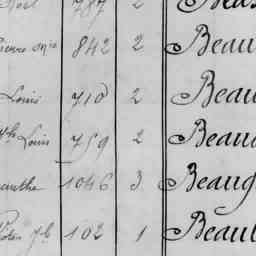 Noël 787 2 Beau
Pierre Mie 842 2 Beau
Louis 710 2 Beau
Louis 759 2 Beau
1046 3 Beaug
102 1 Beaul